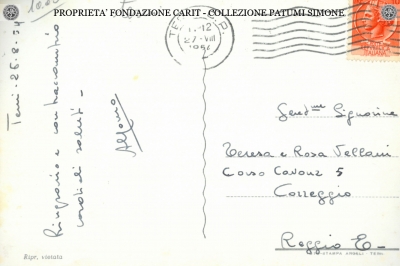 PROPRIETA' FONDAZIONE CARIT - COLLEZIONE PATUMI SIMONE
Terni - 26-8-54
Ringrazio e contraccambio
cordiali saluti -
Alfonso
27.VIII
1954
Gent.me Signorine
Teresa e Rosa Vellani
Corso Cavour 5
Correggio
Reggio E-
Ripr. vietata